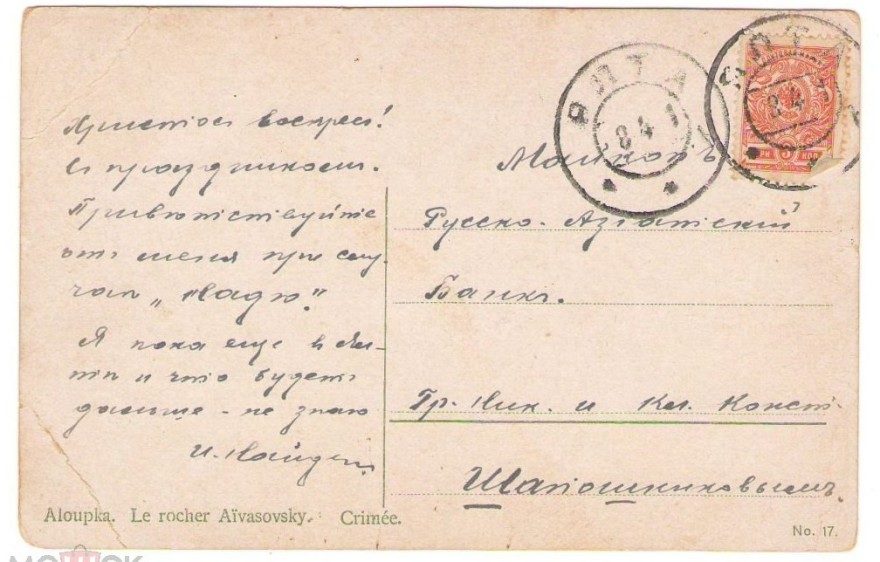 Христос воскрес!
С праздником.
Привѣтствуйте
отъ меня при слу-
чаѣ „Надю".
Я пока еще в Ял-
тѣ и что будетъ
дальше - не знаю
И. Найден
ЯЛТА
8 4
ЯЛТА
8 4
КОП
Майкопъ
Русско-Азіатскій
Банкъ.
Гр. Ник. и Кл. Конст.
Шапошниковымъ.
Aloupka. Le rocher Aïvasovsky. Crimée.
No. 17.